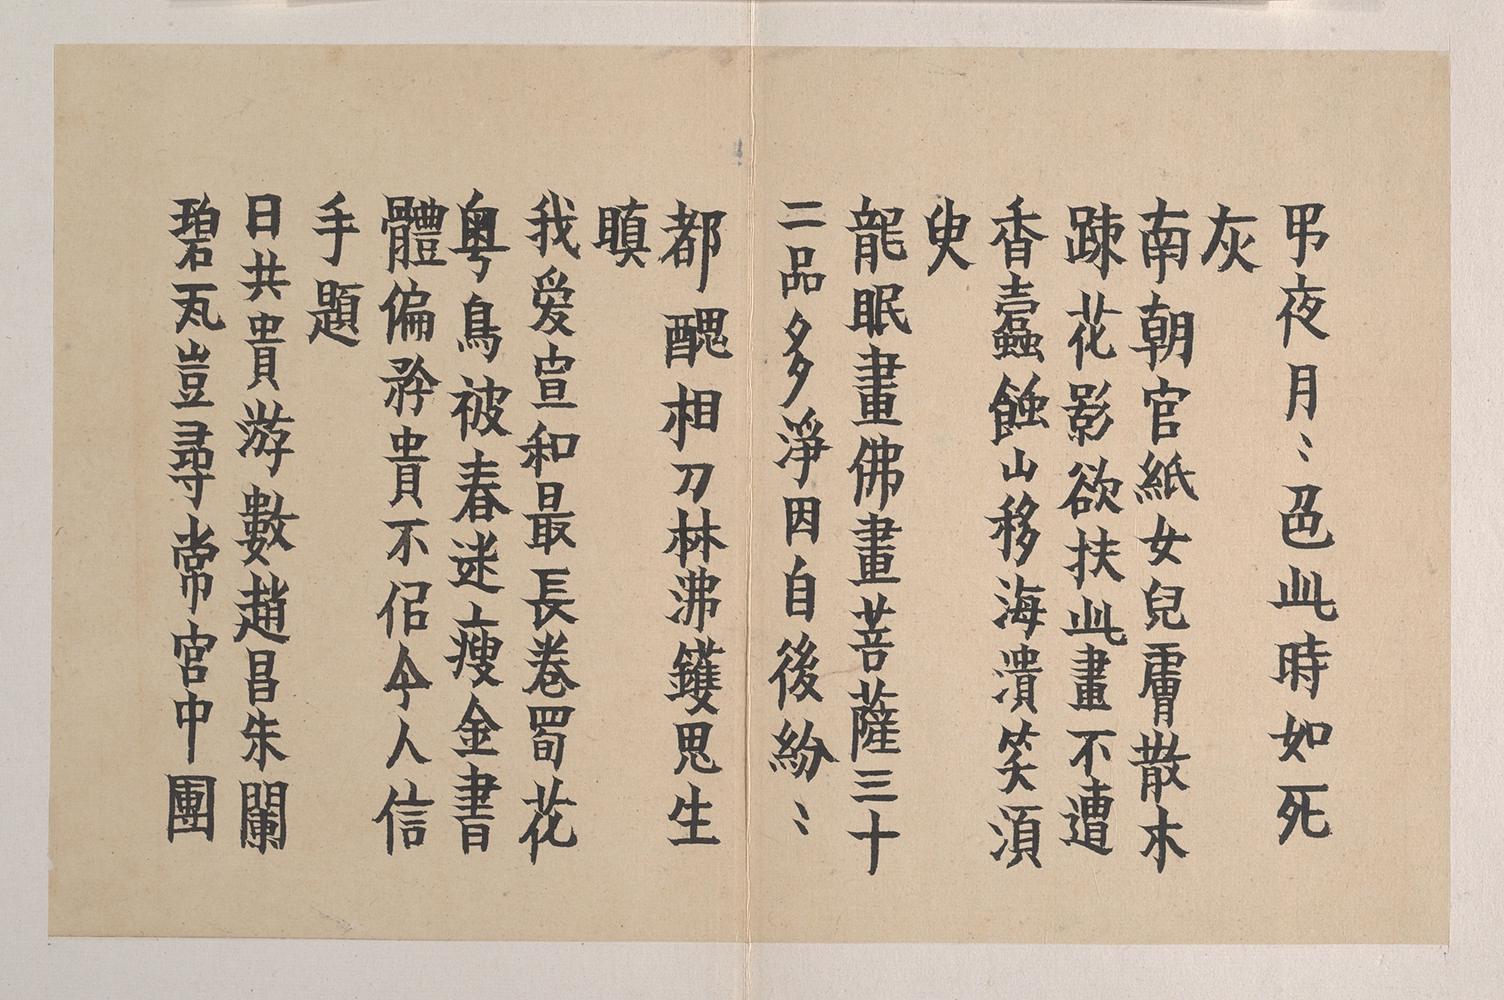 弔夜月〻色此時如死
灰
南朝官紙女兒膚散木
疎花影欲扶此畫不遭
香蠹蝕山移海潰笑須
臾
龍眠畫佛畫菩薩三十
二品多淨因自後紛〻
都醜相刀林沸鑊鬼生
瞋
我爰宣和最長卷蜀花
粵鳥被春迷瘦金書
體偏矜貴不侶今人信
手題
日共貴游數趙昌朱闌
碧瓦豈尋常宮中團